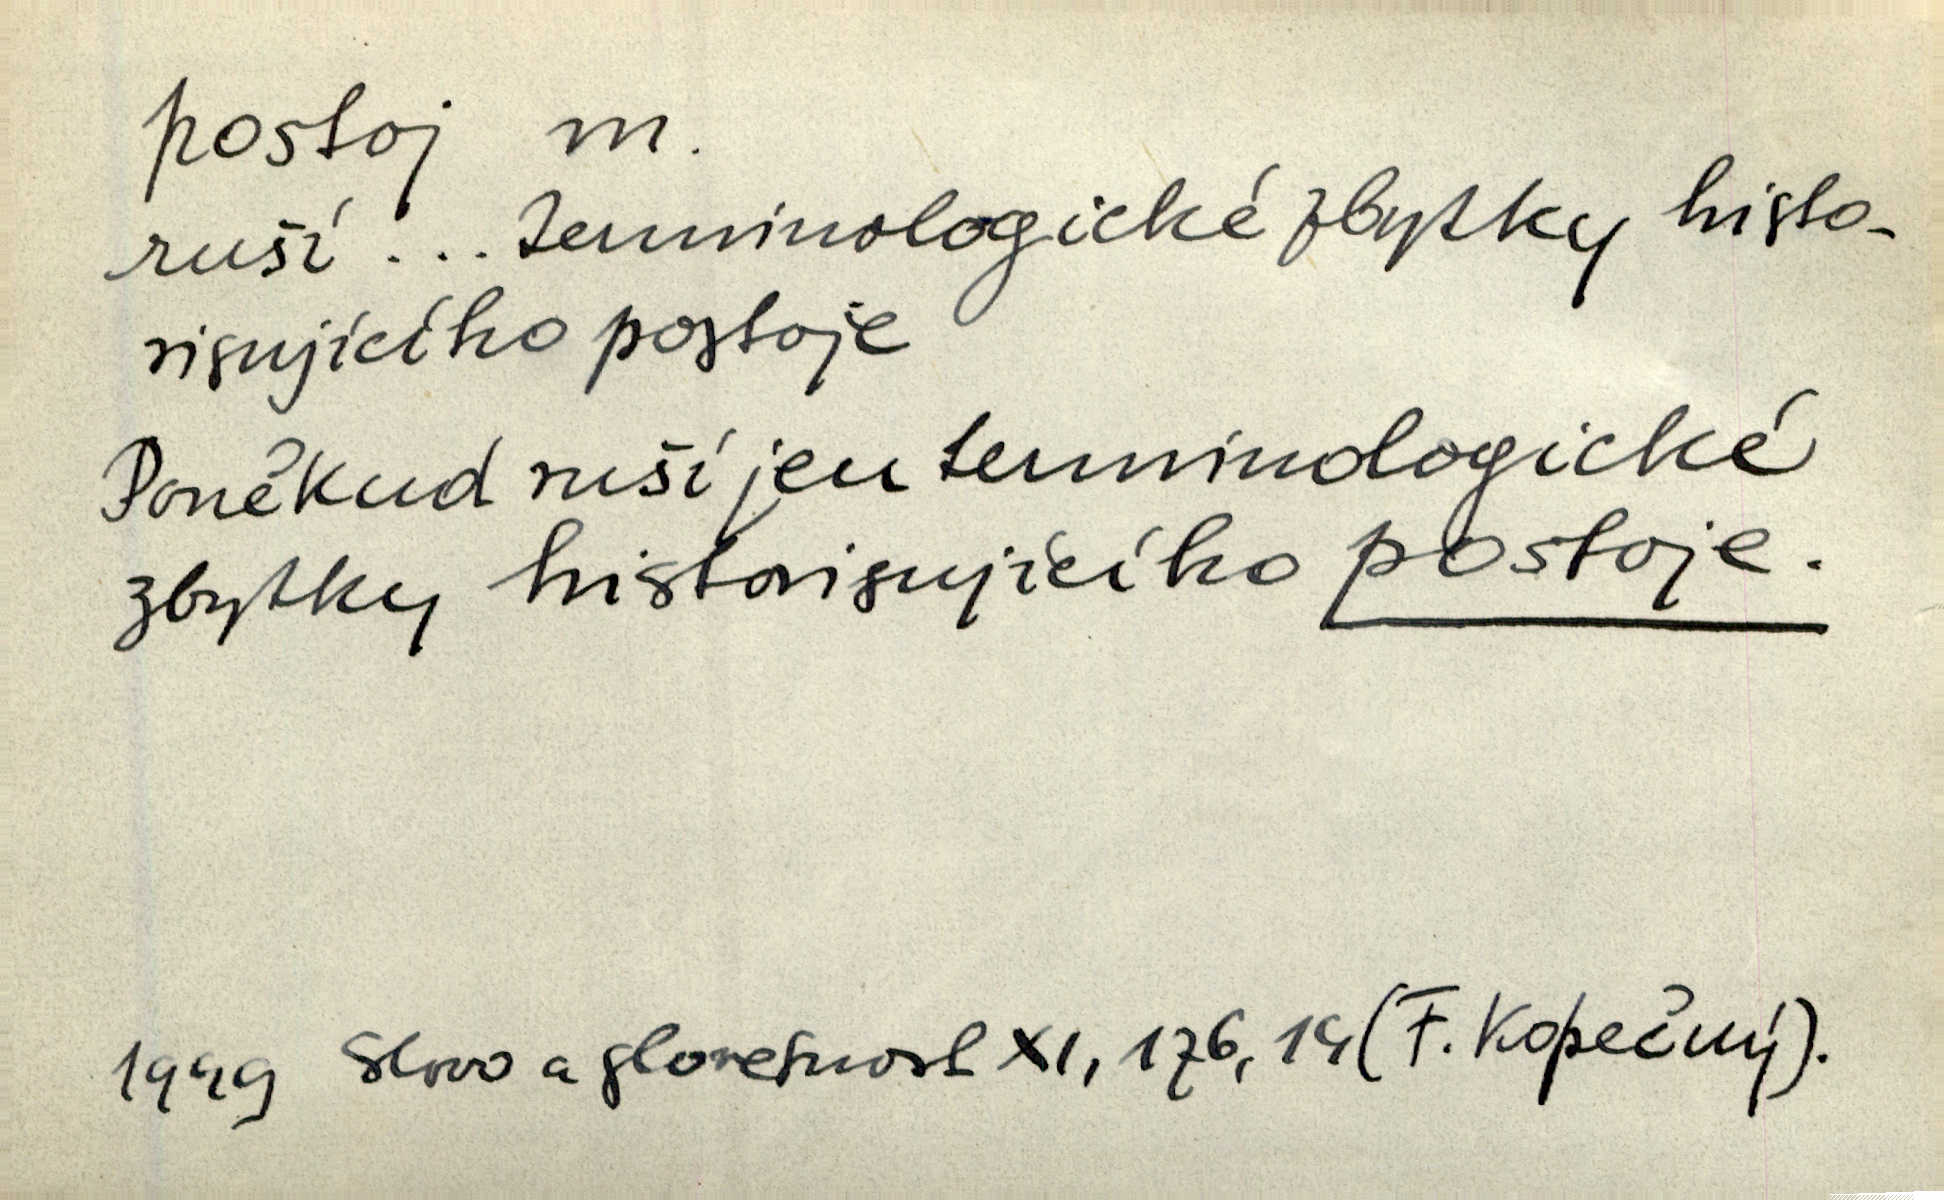 postoj m.
ruší ... terminologické zbytky histo-
risujícího postoje
Poněkud ruší jen terminologické
zbytky historisujícího postoje.
1949 Slovo a slovesnost XI, 176, 14 (F. Kopečný).